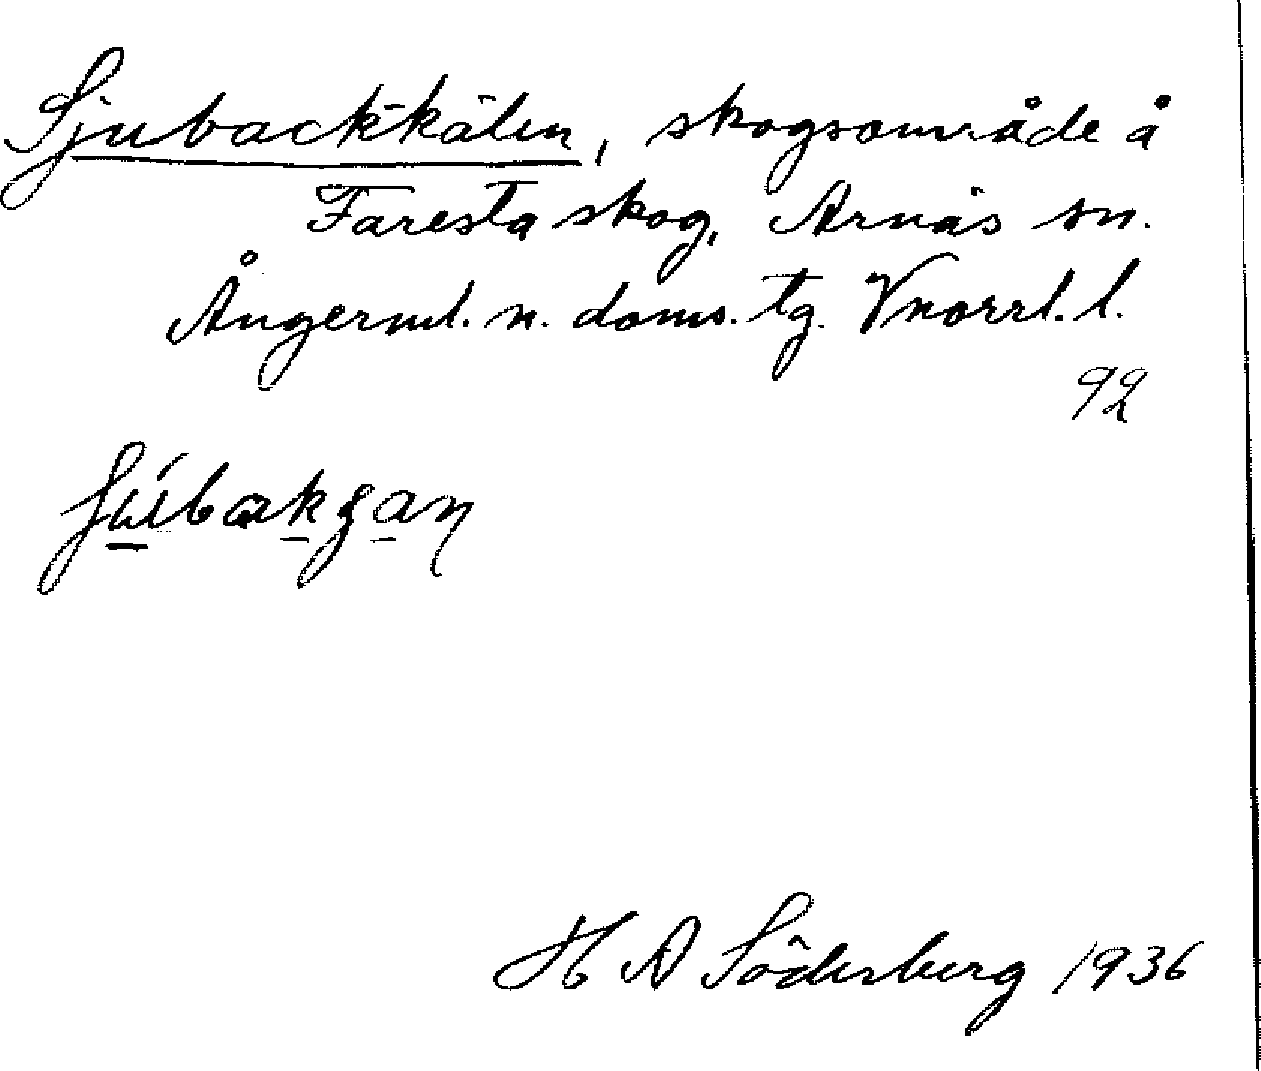 Sjubackkälen, skogsområde å
Faresta skog, Arnäs sn.
Ångerml. n. doms. tg. Vnorrl. l.
92
H A Söderberg 1936